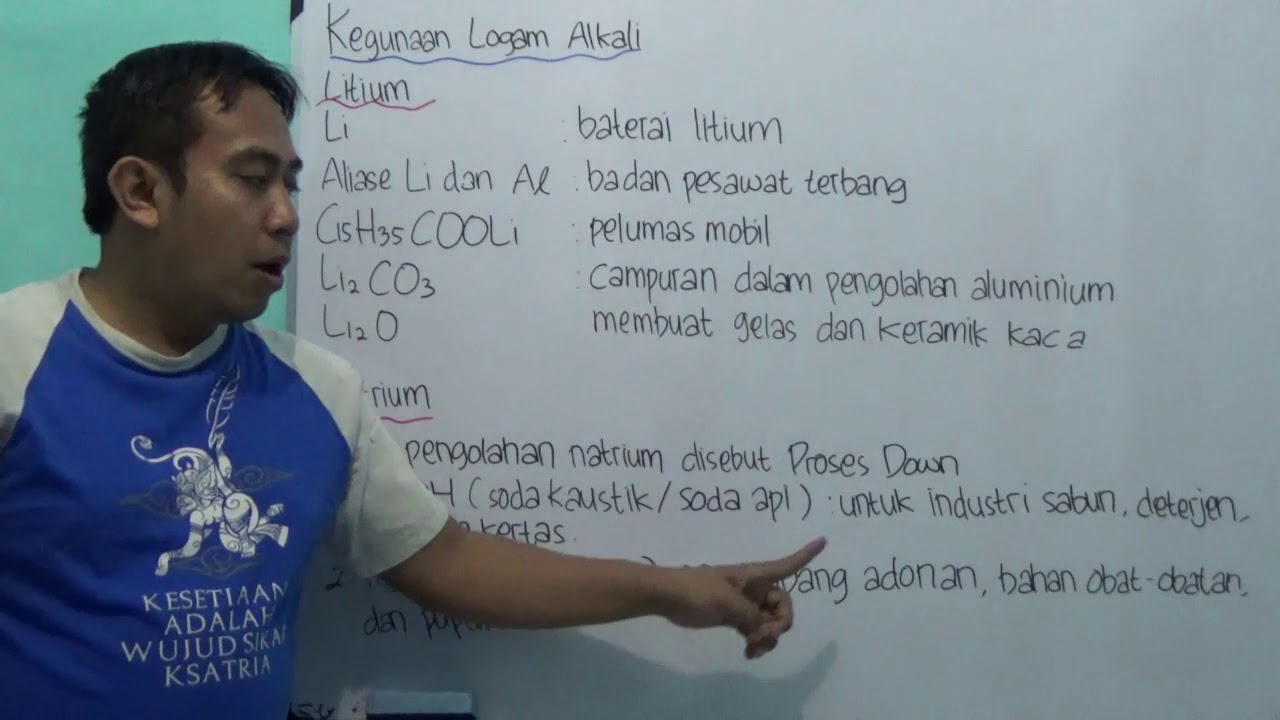 Kegunaan Logam Alkali
Litium
Li : baterai litium
Aliase Li dan Al : badan pesawat terbang
C15H35COOLi : pelumas mobil
Li2CO3 : campuran dalam pengolahan aluminium
Li2O membuat gelas dan keramik kaca
rium
pengolahan natrium disebut Proses Down
H (soda kaustik/soda api) : untuk industri sabun, deterjen,
kertas.
2 bang adonan, bahan obat-obatan,
dan
KESETIAAN
ADALAH
WUJUD SIKAP
KSATRIA